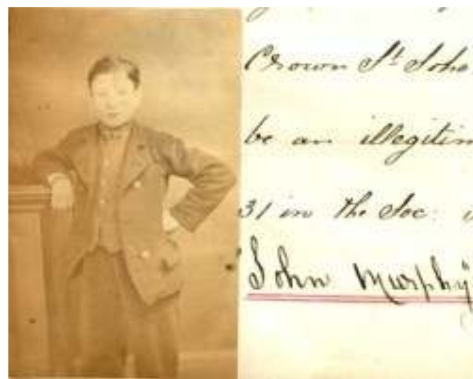 Crown St Soho
be an illegitim
31 in the Soc:
"John Murphy"